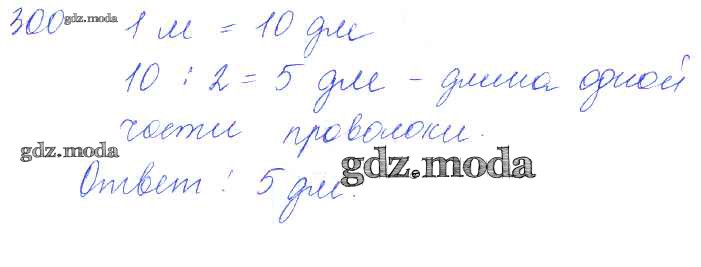 300 gdz.moda 1 м = 10 дм
10 : 2 = 5 дм – длина одной
части проволоки.
gdz.moda
gdz.moda
Ответ : 5 дм.